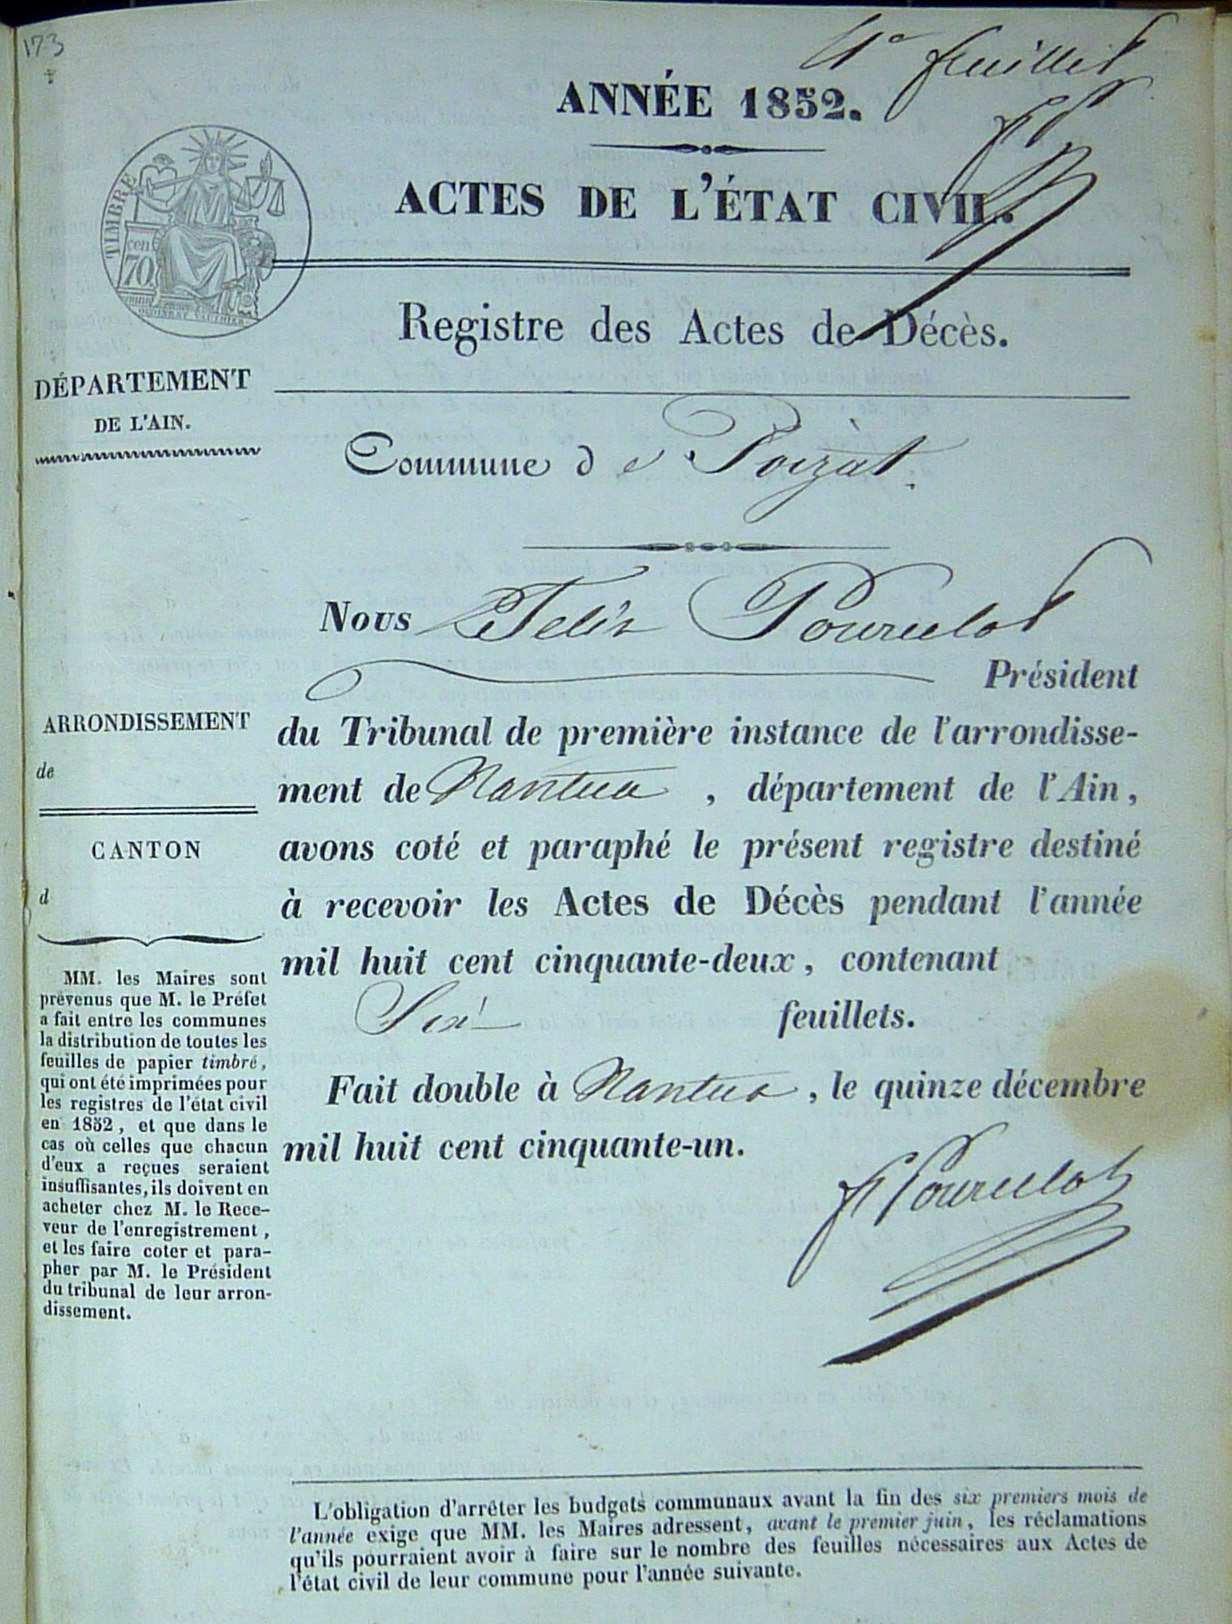 173
1er feuillet
ANNÉE 1852.
ACTES DE L'ÉTAT CIVIL.
TIMBRE
cen
70
Registre des Actes de Décès.
DÉPARTEMENT
DE L'AIN.
Commune de Poizat.
Nous Felix Pourcelot
Président
du Tribunal de première instance de l'arrondisse-
ment de Nantua, département de l'Ain,
avons coté et paraphé le présent registre destiné
à recevoir les Actes de Décès pendant l'année
mil huit cent cinquante-deux, contenant
Six feuillets.
Fait double à Nantua, le quinze décembre
mil huit cent cinquante-un.
F Pourcelot
ARRONDISSEMENT
de
CANTON
d
MM. les Maires sont
prévenus que M. le Préfet
a fait entre les communes
la distribution de toutes les
feuilles de papier timbré,
qui ont été imprimées pour
les registres de l'état civil
en 1852, et que dans le
cas où celles que chacun
d'eux a reçues seraient
insuffisantes, ils doivent en
acheter chez M. le Rece-
veur de l'enregistrement,
et les faire coter et para-
pher par M. le Président
du tribunal de leur arron-
dissement.
L'obligation d'arrêter les budgets communaux avant la fin des six premiers mois de
l'année exige que MM. les Maires adressent, avant le premier juin, les réclamations
qu'ils pourraient avoir à faire sur le nombre des feuilles nécessaires aux Actes de
l'état civil de leur commune pour l'année suivante.